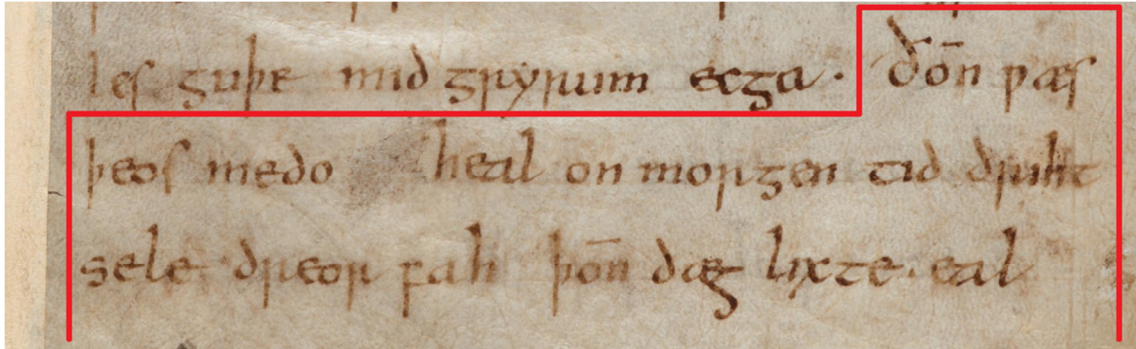 les guþe mid gryrum ecga · ðon̄ ƿæs
þeos medo heal on morgen tid driht
sele dreor fah þon̄ dæg lixte · eal